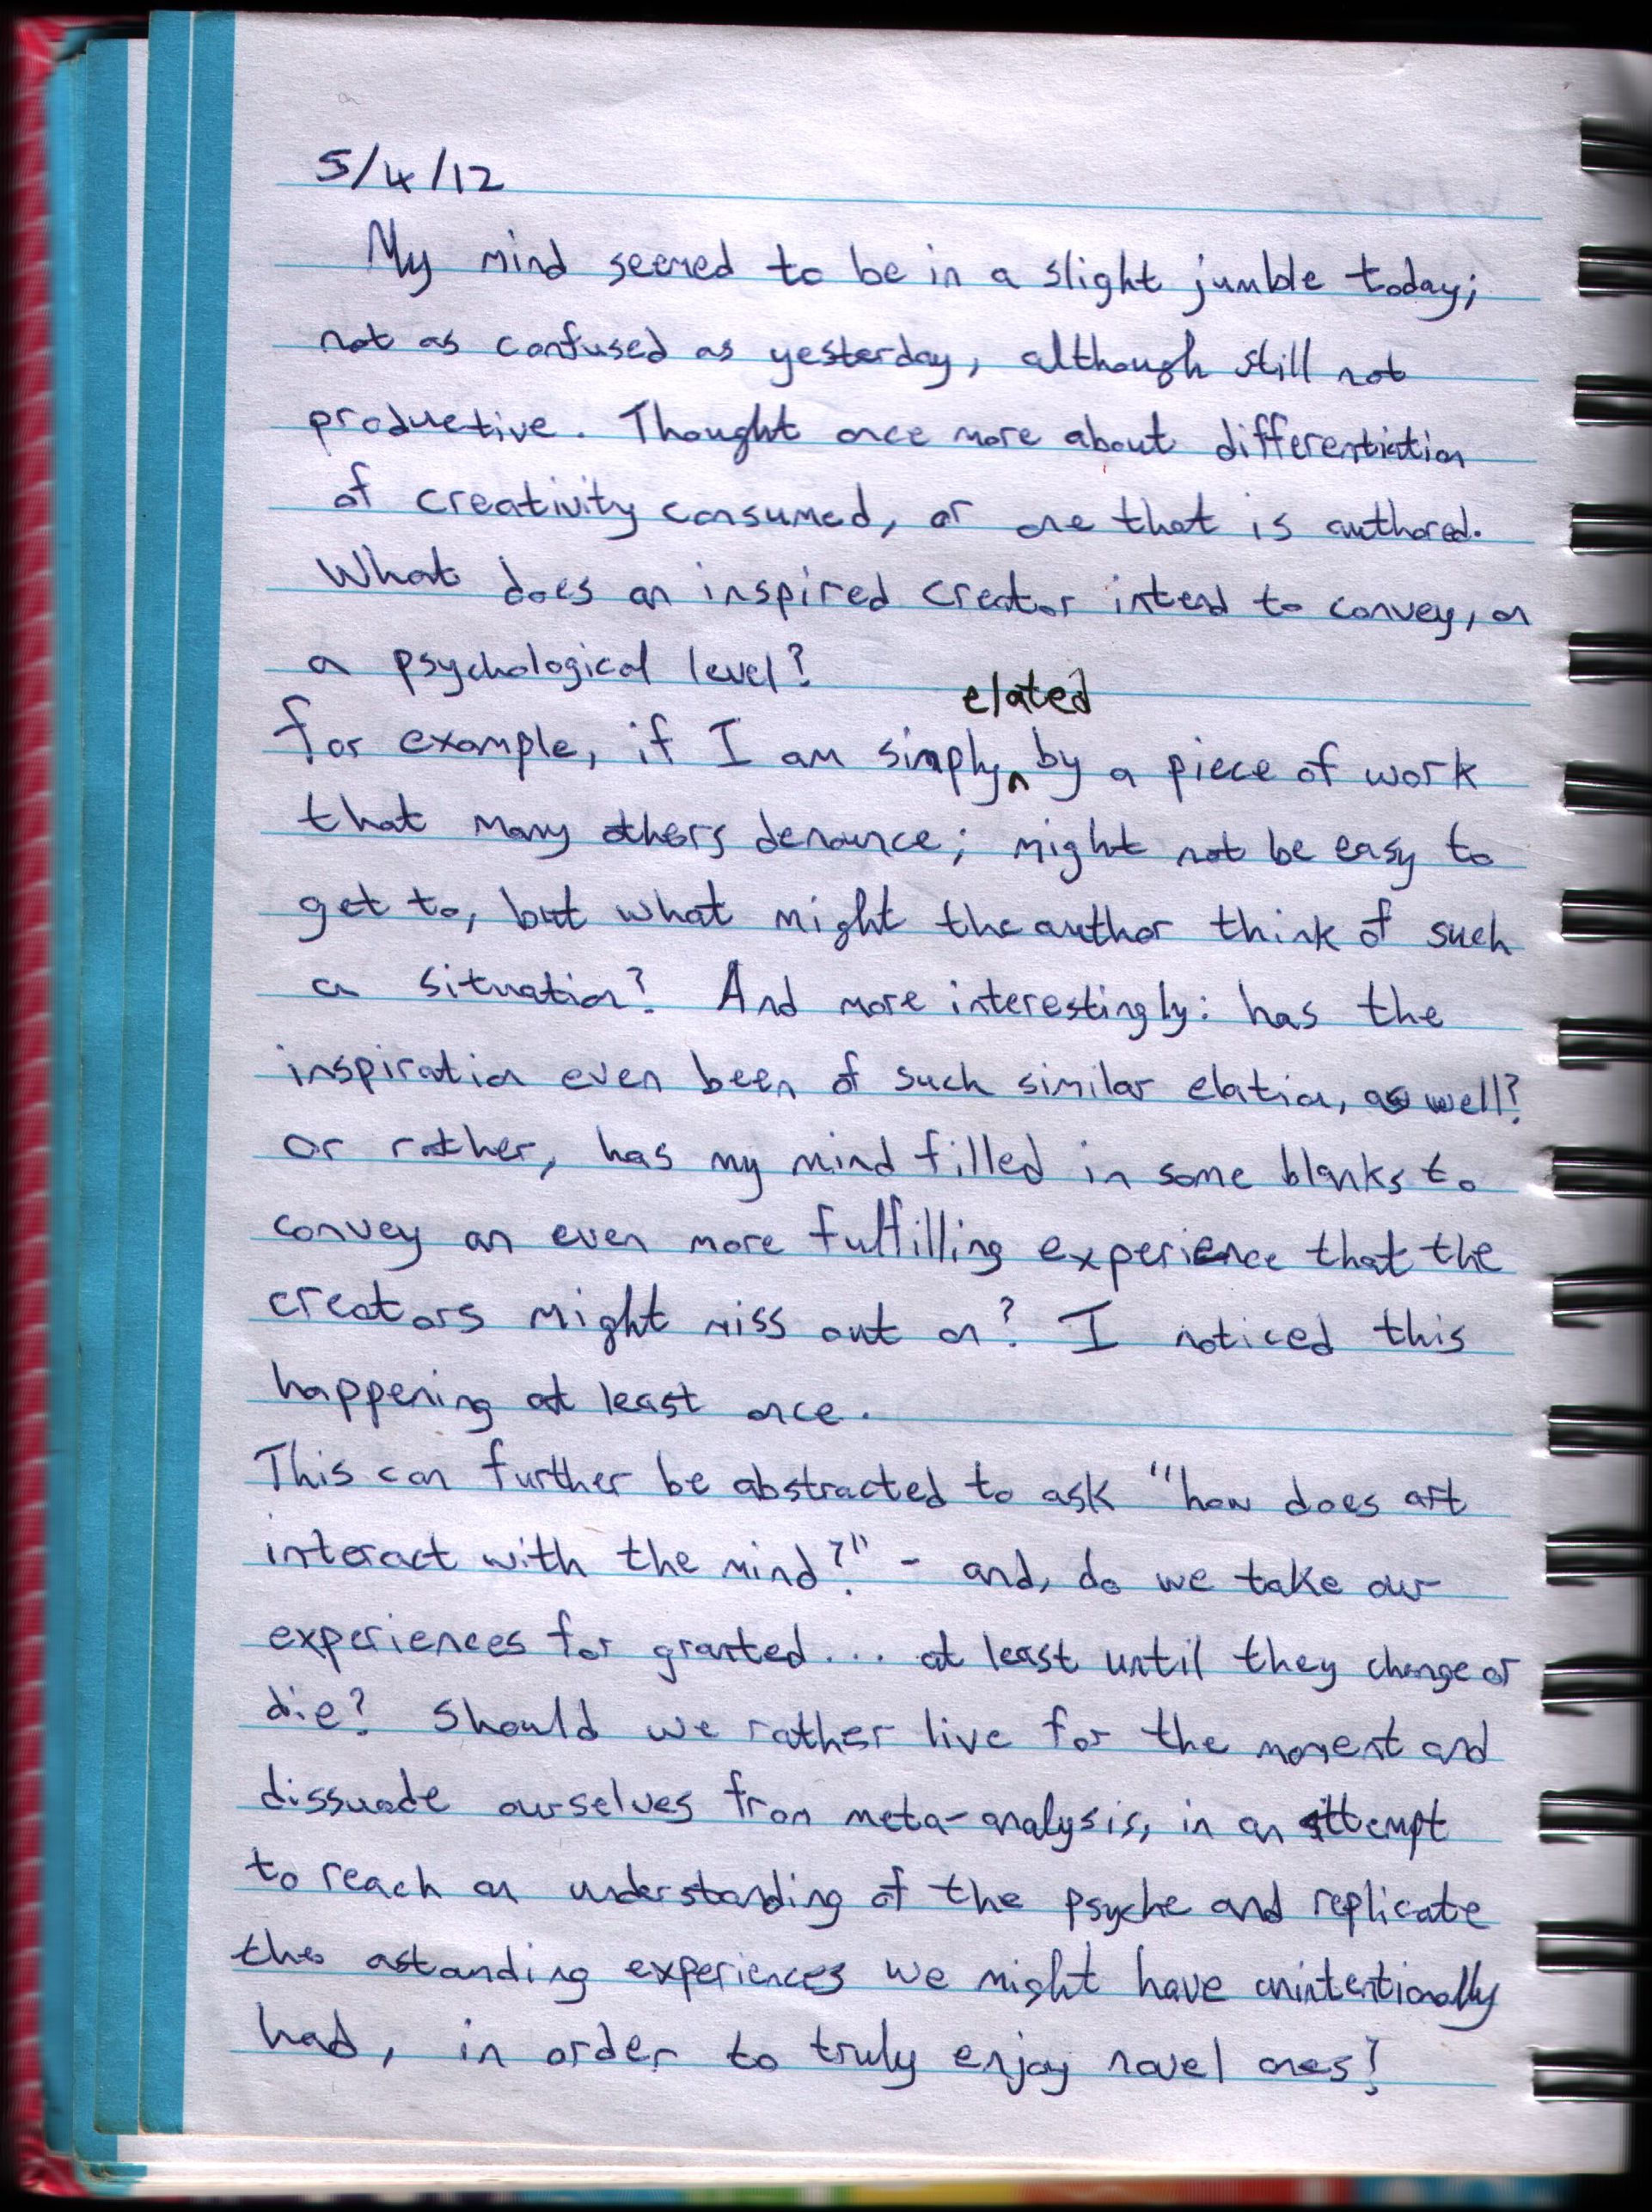 5/4/12
My mind seemed to be in a slight jumble today;
not as confused as yesterday, although still not
productive. Thought once more about differentiation
of creativity consumed, or one that is authored.
What does an inspired creator intend to convey, on
a psychological level?
elated
for example, if I am simply ^ by a piece of work
that many others denounce; might not be easy to
get to, but what might the author think of such
a situation? And more interestingly: has the
inspiration even been of such similar elation, as well?
or rather, has my mind filled in some blanks to
convey an even more fulfilling experience that the
creators might miss out on? I noticed this
happening at least once.
This can further be abstracted to ask "how does art
interact with the mind?" - and, do we take our
experiences for granted... at least until they change or
die? Should we rather live for the moment and
dissuade ourselves from meta-analysis, in an attempt
to reach an understanding of the psyche and replicate
the astounding experiences we might have unintentionally
had, in order to truly enjoy novel ones?